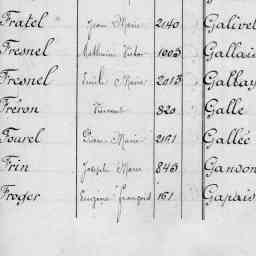 Fratel Jean Marie 2140 Galivet
Fresnel Mathurin Victor 1003 Gallais
Fresnel Emile Marie 2013 Galbay
Fréron Vincent 820 Galle
Furel Pierre Marie 2171 Gallée
Frin Joseph Marie 843 Ganson
Froger Eugène François 161 Gapais